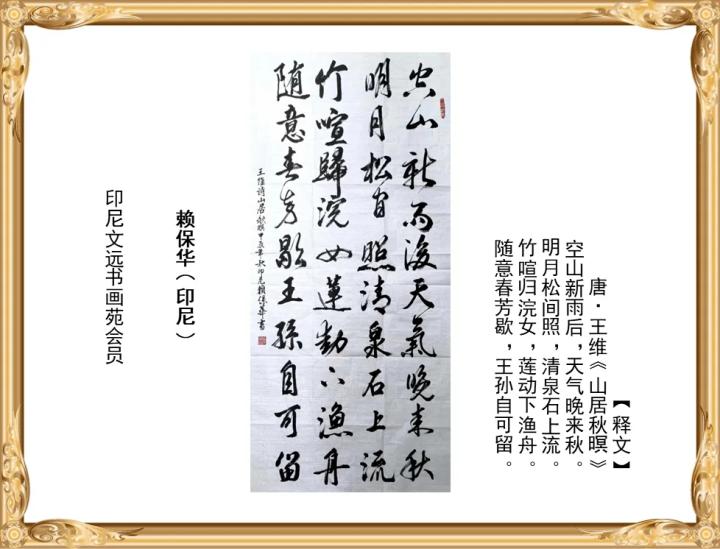 【释文】
唐·王维《山居秋暝》
空山新雨后，天气晚来秋。
明月松间照，清泉石上流。
竹喧归浣女，莲动下渔舟。
随意春芳歇，王孙自可留。
空山新雨後天氣晚来秋
明月松間照清泉石上流
竹喧歸浣女蓮動下漁舟
随意春芳歇王孫自可留
王維诗山居秋暝甲辰年秋印尼賴保華書
赖保华（印尼）
印尼文远书画苑会员